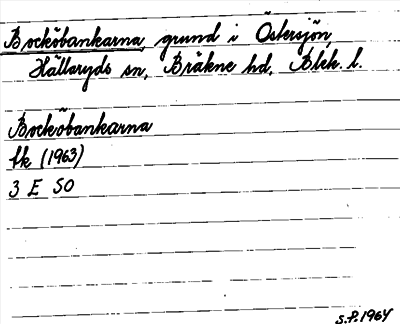 Bocköbankarna, grund i Östersjön,
Hällaryds sn, Bräkne hd, Blek. l.
Bocköbankarna
Ek (1963)
3 E SO
S.P. 1964